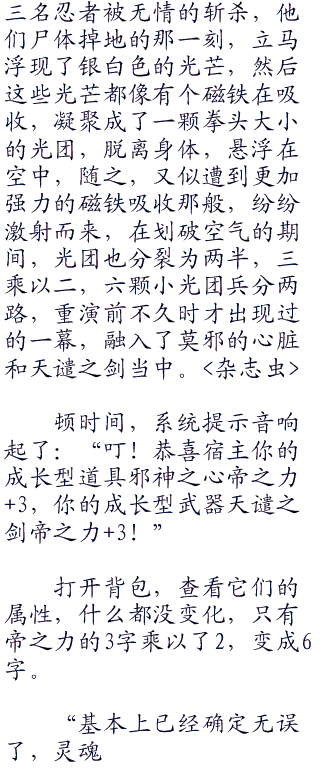 三名忍者被无情的斩杀，他
们尸体掉地的那一刻，立马
浮现了银白色的光芒，然后
这些光芒都像有个磁铁在吸
收，凝聚成了一颗拳头大小
的光团，脱离身体，悬浮在
空中，随之，又似遭到更加
强力的磁铁吸收那般，纷纷
激射而来，在划破空气的期
间，光团也分裂为两半，三
乘以二，六颗小光团兵分两
路，重演前不久时才出现过
的一幕，融入了莫邪的心脏
和天谴之剑当中。<杂志虫>
顿时间，系统提示音响
起了：“叮！恭喜宿主你的
成长型道具邪神之心帝之力
+3，你的成长型武器天谴之
剑帝之力+3！”
打开背包，查看它们的
属性，什么都没变化，只有
帝之力的3字乘以了2，变成6
字。
“基本上已经确定无误
了，灵魂